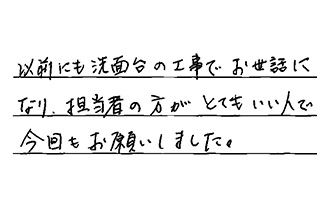 以前にも洗面台の工事でお世話に
なり、担当者の方がとてもいい人で
今回もお願いしました。